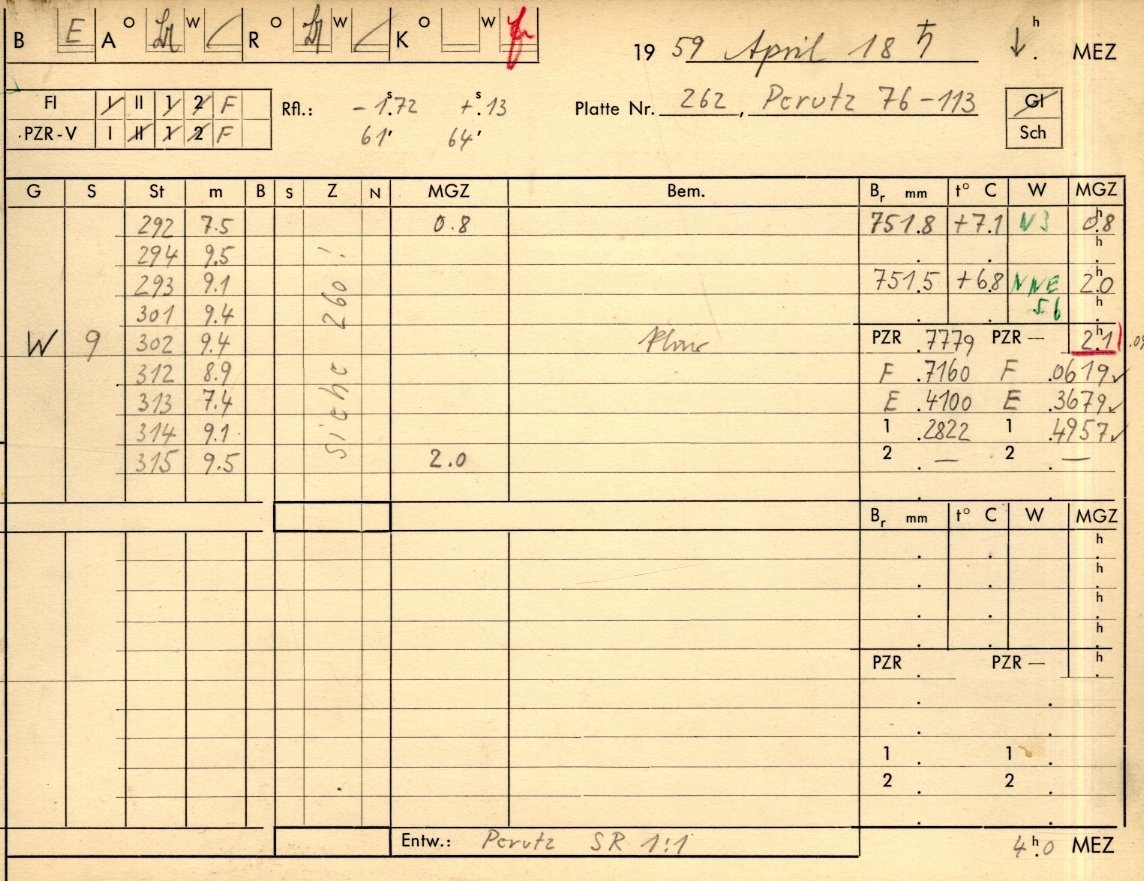 B E A O W R O W K O W
19 59 April 18 ♄ h MEZ
Fl I II 1 2 F
PZR-V I II 1 2 F
Rfl.: -1ˢ.72 +ˢ.13
61' 64'
Platte Nr. 262, Perutz 76-113
Gl
Sch
G S St m B S Z N MGZ Bem. Bᵣ mm t° C W MGZ
292 7.5 0.8 751.8 +7.1 N3 0ʰ.8
294 9.5 h
293 9.1 751.5 +6.8 NNE 2ʰ.0
301 9.4 56 h
W 9 302 9.4 PZR .7779 PZR — 2ʰ.1
312 8.9 F .7160 F .0619 ✓
313 7.4 E .4100 E .3679 ✓
314 9.1 1 .2822 1 .4957 ✓
315 9.5 2.0 2 — 2 —
siehe 260!
Bᵣ mm t° C W MGZ
h
h
h
h
PZR PZR — h
1 1
2 2
Entw.: Perutz SR 1:1
4ʰ.0 MEZ